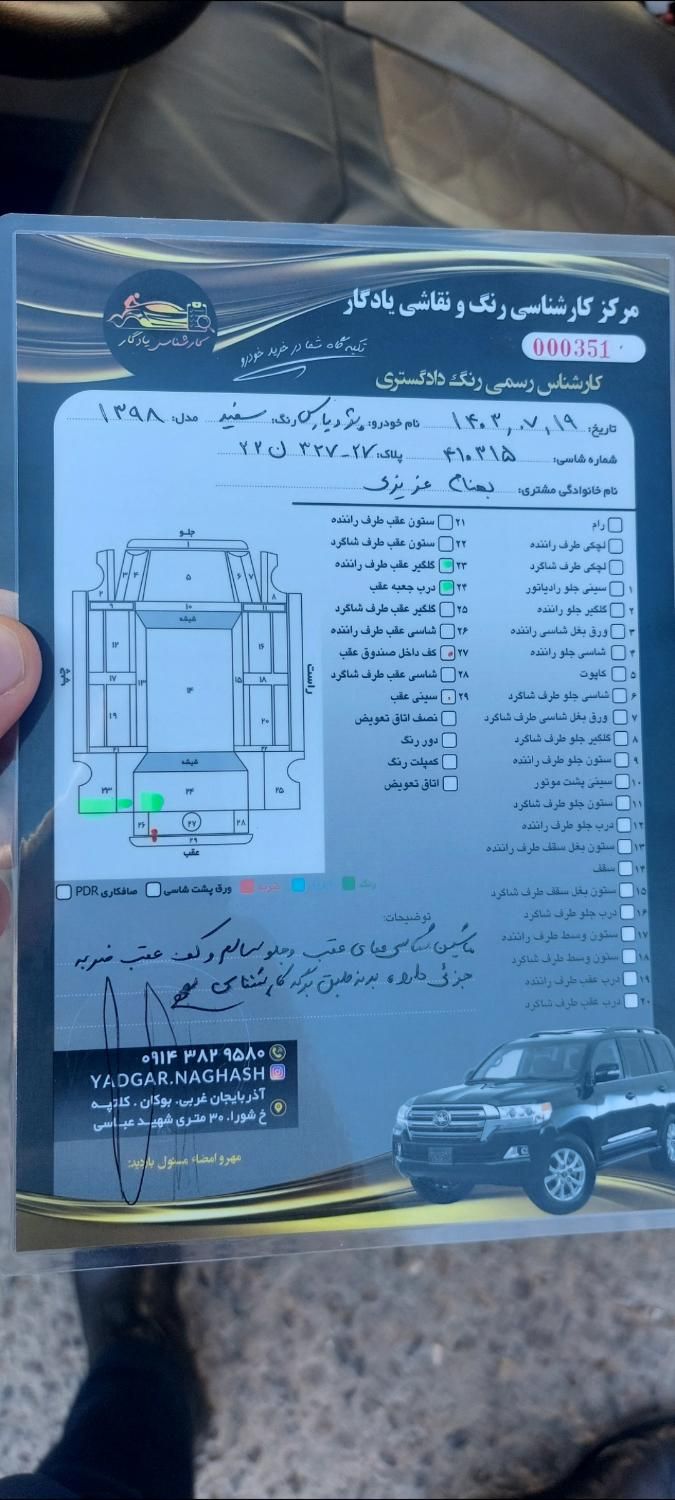 مرکز کارشناسی رنگ و نقاشی یادگار
کارشناسی یادگار
تکیه گاه شما در خرید خودرو
000351
کارشناس رسمی رنگ دادگستری
تاریخ: ۱۴۰۳,۰۷,۱۹ نام خودرو: پژو پارس رنگ: سفید مدل: ۱۳۹۸
شماره شاسی: ۴۱۰۳۱۵ پلاک: ۲۷-۳۲۷ ن ۲۲
نام خانوادگی مشتری: بهنام عزیزی
رام
لچکی طرف راننده
لچکی طرف شاگرد
۱ سینی جلو رادیاتور
۲ گلگیر جلو راننده
۳ ورق بغل شاسی راننده
۴ شاسی جلو راننده
۵ کاپوت
۶ شاسی جلو طرف شاگرد
۷ ورق بغل شاسی طرف شاگرد
۸ گلگیر جلو طرف شاگرد
۹ ستون جلو طرف راننده
۱۰ سینی پشت موتور
۱۱ ستون جلو طرف شاگرد
۱۲ درب جلو طرف راننده
۱۳ ستون بغل سقف طرف راننده
۱۴ سقف
۱۵ ستون بغل سقف طرف شاگرد
۱۶ درب جلو طرف شاگرد
۱۷ ستون وسط طرف راننده
۱۸ ستون وسط طرف شاگرد
۱۹ درب عقب طرف راننده
۲۰ درب عقب طرف شاگرد
۲۱ ستون عقب طرف راننده
۲۲ ستون عقب طرف شاگرد
۲۳ گلگیر عقب طرف راننده
۲۴ درب جعبه عقب
۲۵ گلگیر عقب طرف شاگرد
۲۶ شاسی عقب طرف راننده
۲۷ کف داخل صندوق عقب
۲۸ شاسی عقب طرف شاگرد
۲۹ سینی عقب
نصف اتاق تعویض
دور رنگ
کمپلت رنگ
اتاق تعویض
جلو
۱
۲ ۳ ۴ ۵ ۶ ۷ ۸
۹ ۱۰ ۱۱
شیشه
۱۲ ۱۶
چپ ۱۷ ۱۳ ۱۴ ۱۵ ۱۸ راست
۱۹ ۲۰
۲۱ ۲۲
شیشه
۲۳ ۲۴ ۲۵
۲۶ ۲۷ ۲۸
۲۹
عقب
رنگ ضربه ورق پشت شاسی صافکاری PDR
توضیحات:
ماشین شاسی های عقب و جلو سالم و کف عقب ضربه
جزئی دارد، بدنه طبق برگه کارشناسی
۰۹۱۴ ۳۸۲ ۹۵۸۰
YADGAR.NAGHASH
آذربایجان غربی. بوکان . کلتپه
خ شورا. ۳۰ متری شهید عباسی
مهر و امضاء مسئول بازدید: